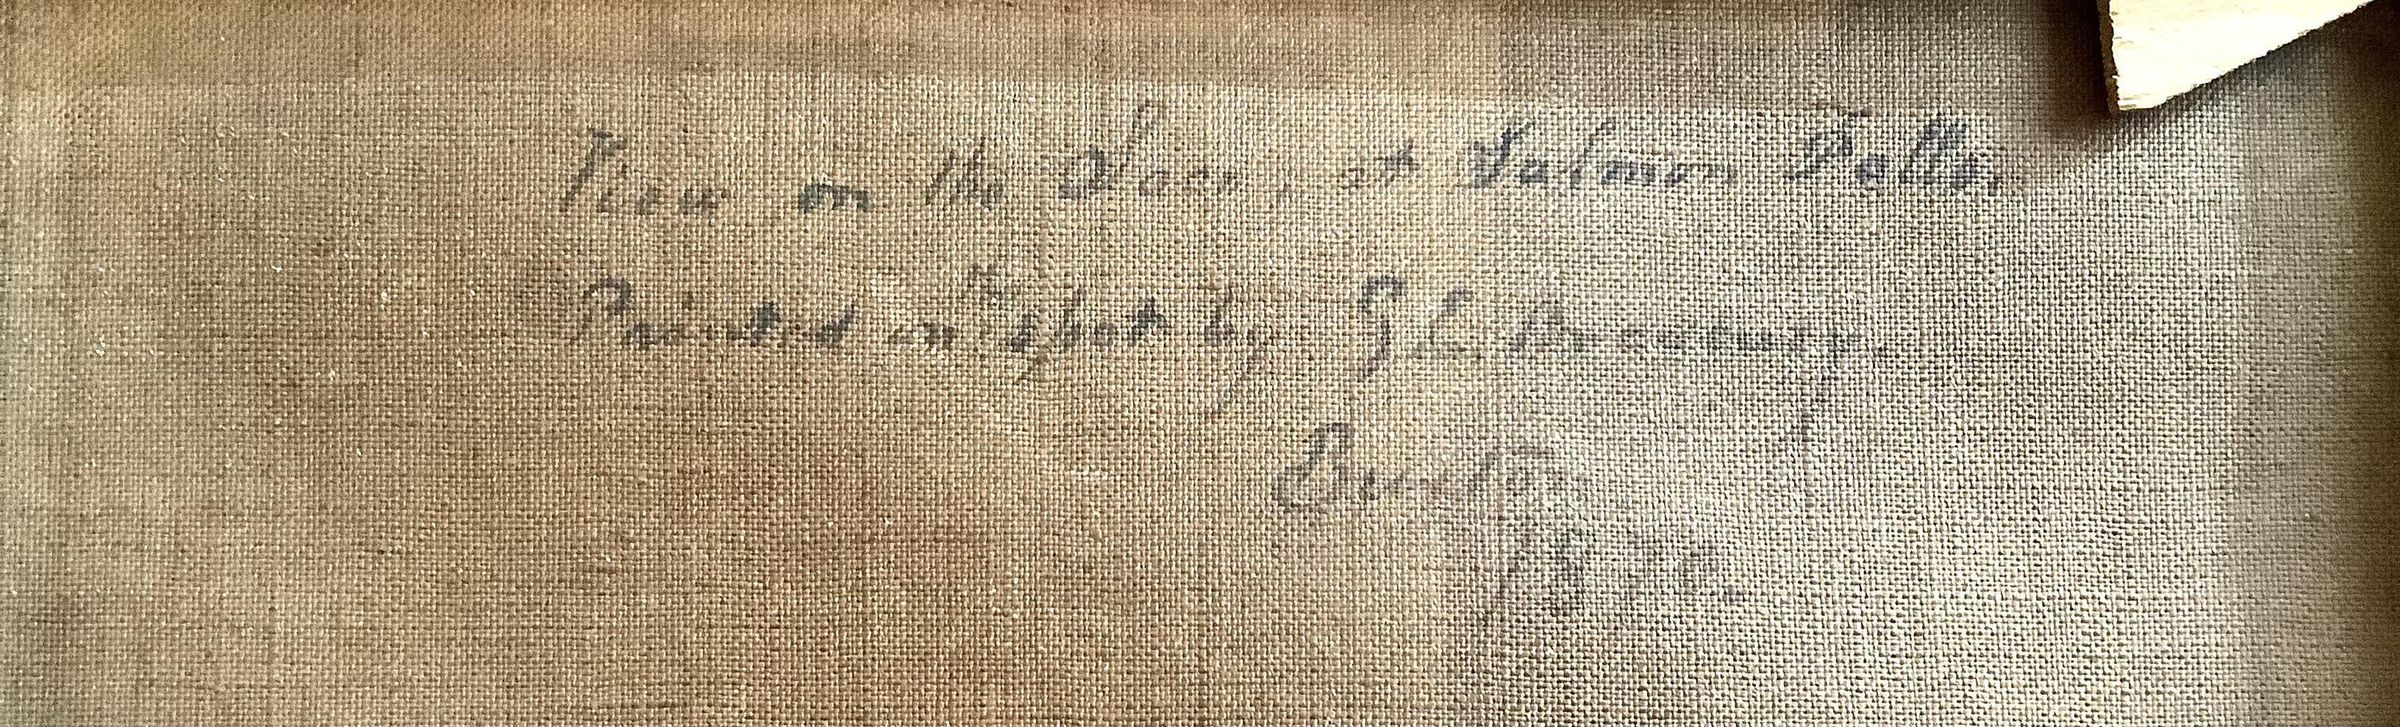 View on the Saco, at Salmon Falls.
Painted on spot by G L
Boston